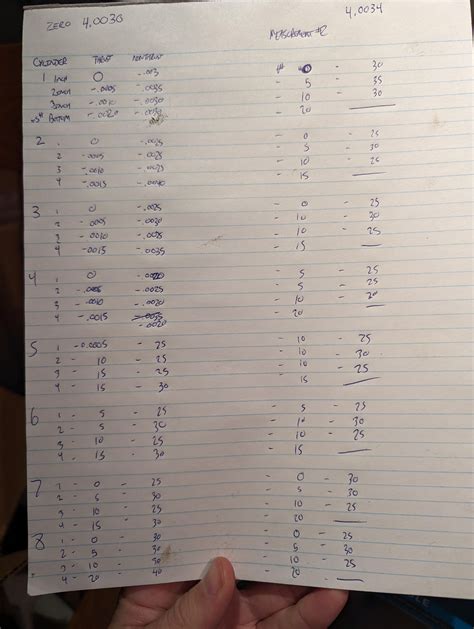 ZERO 4.0030 4.0034
MEASUREMENT #2
CYLINDER THRUST NONTHRUST
1 1 inch 0 -.003 - 0 - 30
2 inch -.0005 -.0035 - 5 - 35
3 inch -.0010 -.0030 - 10 - 30
Bottom -.0020 -.0030 - 20 —
2 1 0 -.0025 - 0 - 25
2 -.0005 -.0025 - 5 - 30
3 -.0010 -.0025 - 10 - 25
4 -.0015 -.0040 - 15 —
3 1 0 -.0025 - 0 - 25
2 -.0005 -.0030 - 10 - 30
3 -.0010 -.0025 - 10 - 25
4 -.0015 -.0035 - 15 —
4 1 0 -.0020 - 5 - 25
2 -.0005 -.0020 - 5 - 25
3 -.0010 -.0020 - 10 - 20
4 -.0015 - 20 —
-.0020
5 1 -0.0005 - 25 - 10 - 25
2 - 10 - 25 - 10 - 30
3 - 15 - 25 - 10 - 25
4 - 15 - 30 15 —
6 1 - 5 - 25 - 5 - 25
2 - 5 - 30 - 10 - 30
3 - 10 - 25 - 10 - 25
4 - 15 - 30 - 15 —
7 1 - 0 - 25 - 0 - 30
2 - 5 - 30 - 5 - 30
3 - 10 - 25 - 10 - 25
4 - 15 - 30 - 20 —
8 1 - 0 - 30 - 0 - 25
2 - 5 - 30 - 5 - 30
3 - 10 - 30 - 10 - 30
4 - 20 - 40 - 20 —